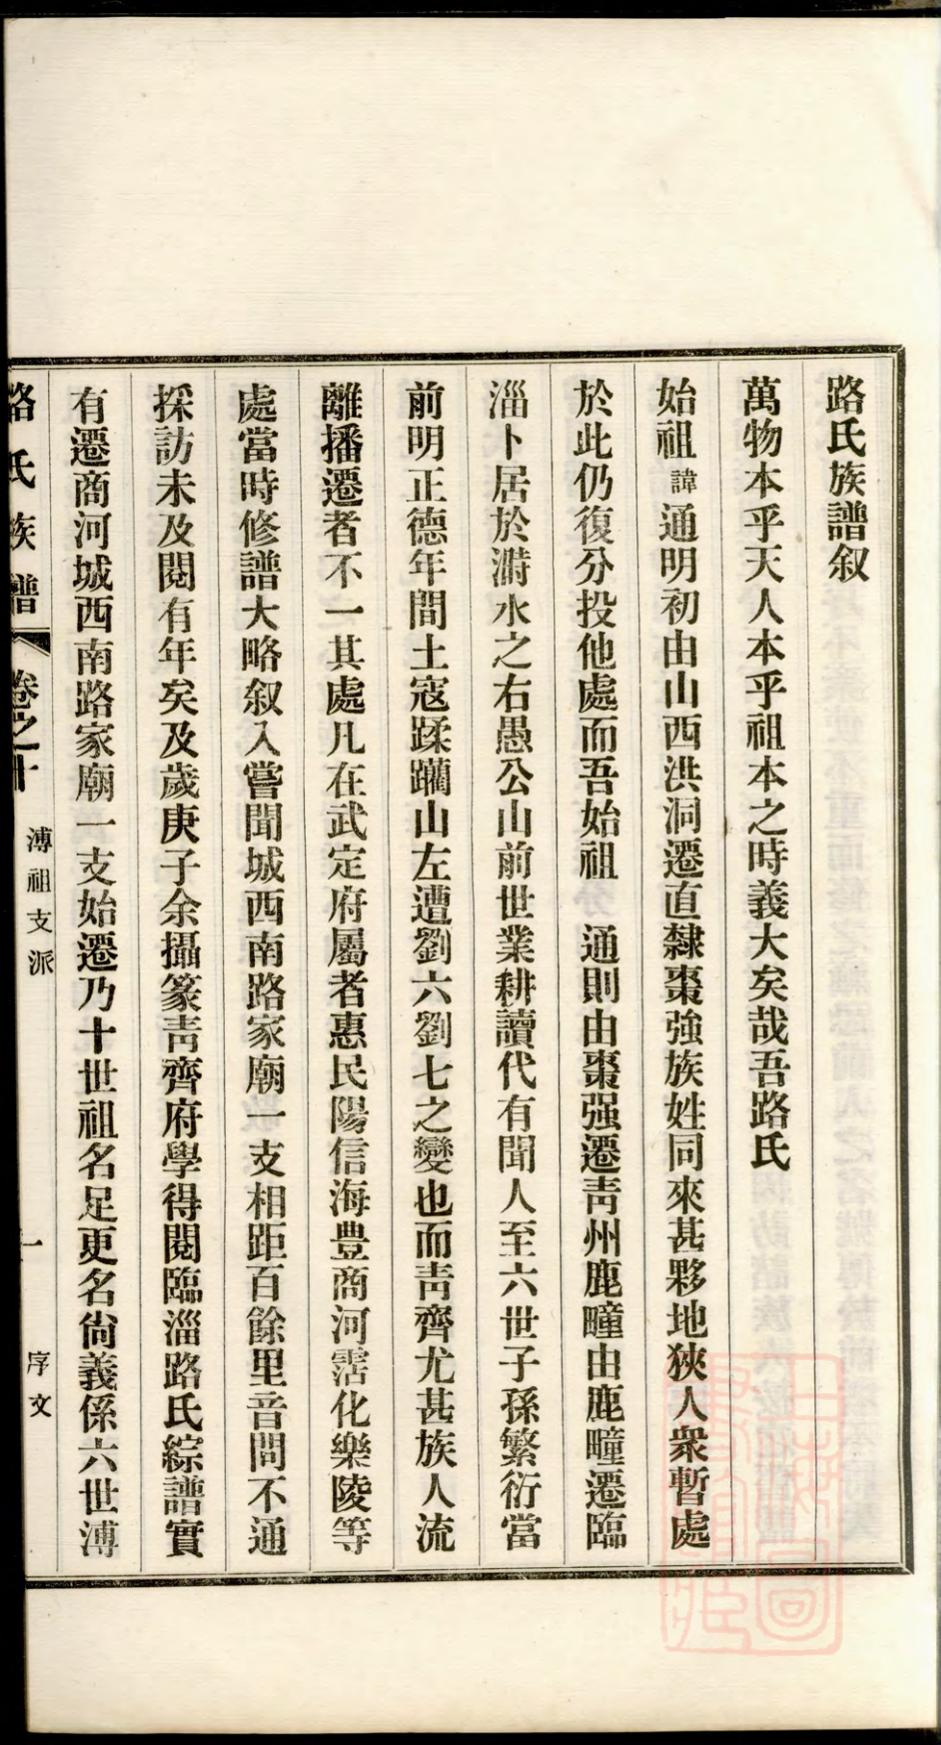 路氏族譜叙
萬物本乎天人本乎祖本之時義大矣哉吾路氏
始祖諱通明初由山西洪洞遷直隸棗強族姓同來甚夥地狹人衆暫處
於此仍復分投他處而吾始祖　通則由棗强遷靑州鹿疃由鹿疃遷臨
淄卜居於澅水之右愚公山前世業耕讀代有聞人至六世子孫繁衍當
前明正德年間土寇蹂躪山左遭劉六劉七之變也而靑齊尤甚族人流
離播遷者不一其處凡在武定府屬者惠民陽信海豊商河霑化樂陵等
處當時修譜大略叙入嘗聞城西南路家廟一支相距百餘里音問不通
採訪未及閱有年矣及歲庚子余攝篆靑齊府學得閱臨淄路氏綜譜實
有遷商河城西南路家廟一支始遷乃十世祖名足更名尙義係六世溥
路氏族譜　卷之十　溥祖支派　一　序文